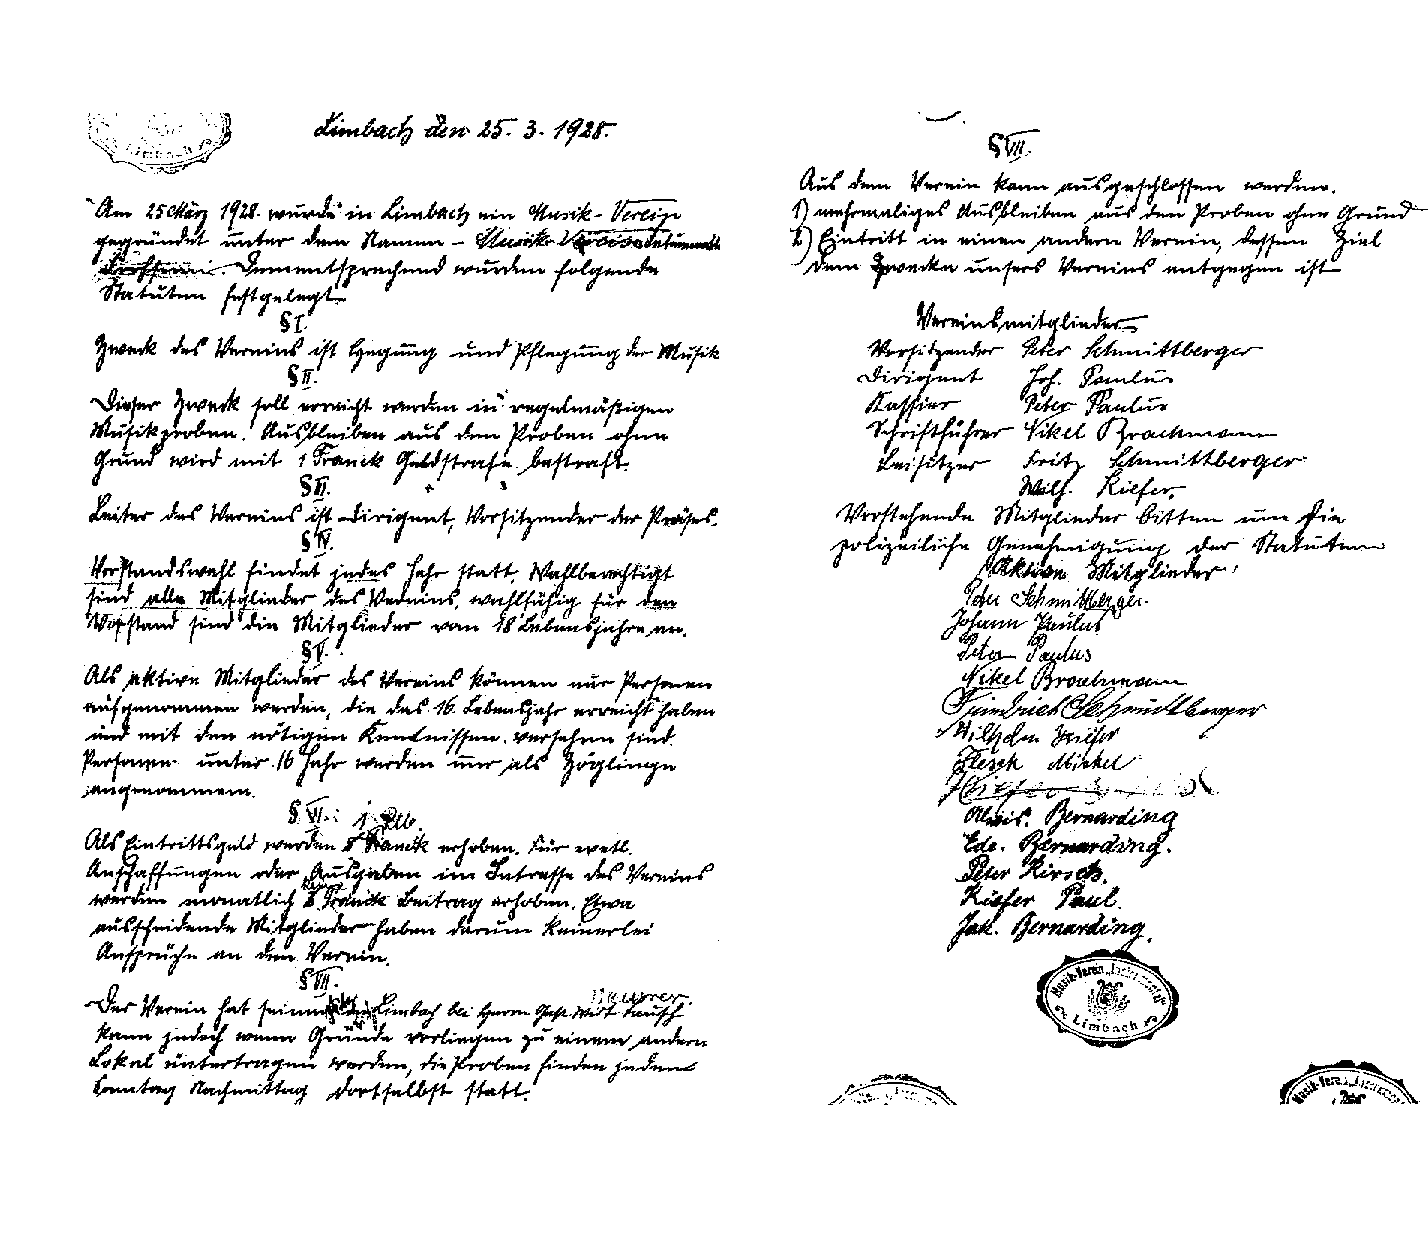 Limbach
Limbach den 25. 3. 1928.
Am 25 März 1928. wurde in Limbach ein Musik-Verein
gegründet unter dem Namen - Musik Verein
Dementsprechend wurden folgende
Statuten festgelegt.
§ I.
Zweck des Vereins ist Hegung und Pflegung der Musik
§ II.
Dieser Zweck soll erreicht werden in regelmäßigen
Musikproben. Ausbleiben aus den Proben ohne
Grund wird mit 1 Franck Geldstrafe bestraft.
§ III.
Leiter des Vereins ist Dirigent, Vorsitzender der Präses.
§ IV.
Vorstandswahl findet jedes Jahr statt, Wahlberechtigt
sind alle Mitglieder des Vereins, wahlfähig für den
Vorstand sind die Mitglieder vom 18 Lebensjahre an.
§ V.
Als aktive Mitglieder des Vereins können nur Personen
aufgenommen werden, die das 16. Lebensjahr erreicht haben
und mit den nötigen Kenntnissen versehen sind.
Personen unter 16 Jahr werden nur als Zöglinge
angenommen.
§ VI.
Als Eintrittsgeld werden Franck erhoben. Für evetl.
Anschaffungen oder Ausgaben im Intresse des Vereins
werden monatlich Franck Beitrag erhoben. Etwa
ausscheidende Mitglieder haben darum keinerlei
Ansprüche an den Verein.
§ VII.
Der Verein hat seinen Limbach bei Herrn Gast Wirt
kann jedoch wenn Gründe vorliegen zu einem andern
Lokal übertragen werden, die Proben finden jeden
Sonntag Nachmittag dortselbst statt.
§ VII.
Aus dem Verein kann ausgeschlossen werden.
1) mehrmaliges Ausbleiben aus den Proben ohne Grund
2) Eintritt in einen andern Verein, dessen Ziel
dem Zwecke unsers Vereins entgegen ist
Vereinsmitglieder
Vorsitzender Peter Schmittberger
Dirigent Joh. Paulus
Kassier Peter Paulus
Schriftführer Nikel Brachmann
Beisitzer Fritz Schmittberger
Wilh. Kiefer.
Vorstehende Mitglieder bitten um die
polizeiliche Genehmigung der Statuten
Aktive Mitglieder
Peter Schmittberger.
Johann Paulus
Peter Paulus
Nikel Brachmann
Friedrich Schmittberger
Wilhelm Kiefer
Flesch Michel
Kiefer
Alois. Bernarding
Edc. Bernarding.
Peter Kirsch.
Kiefer Paul.
Jak. Bernarding.
Musik-Verein
Limbach
Musik-Verein